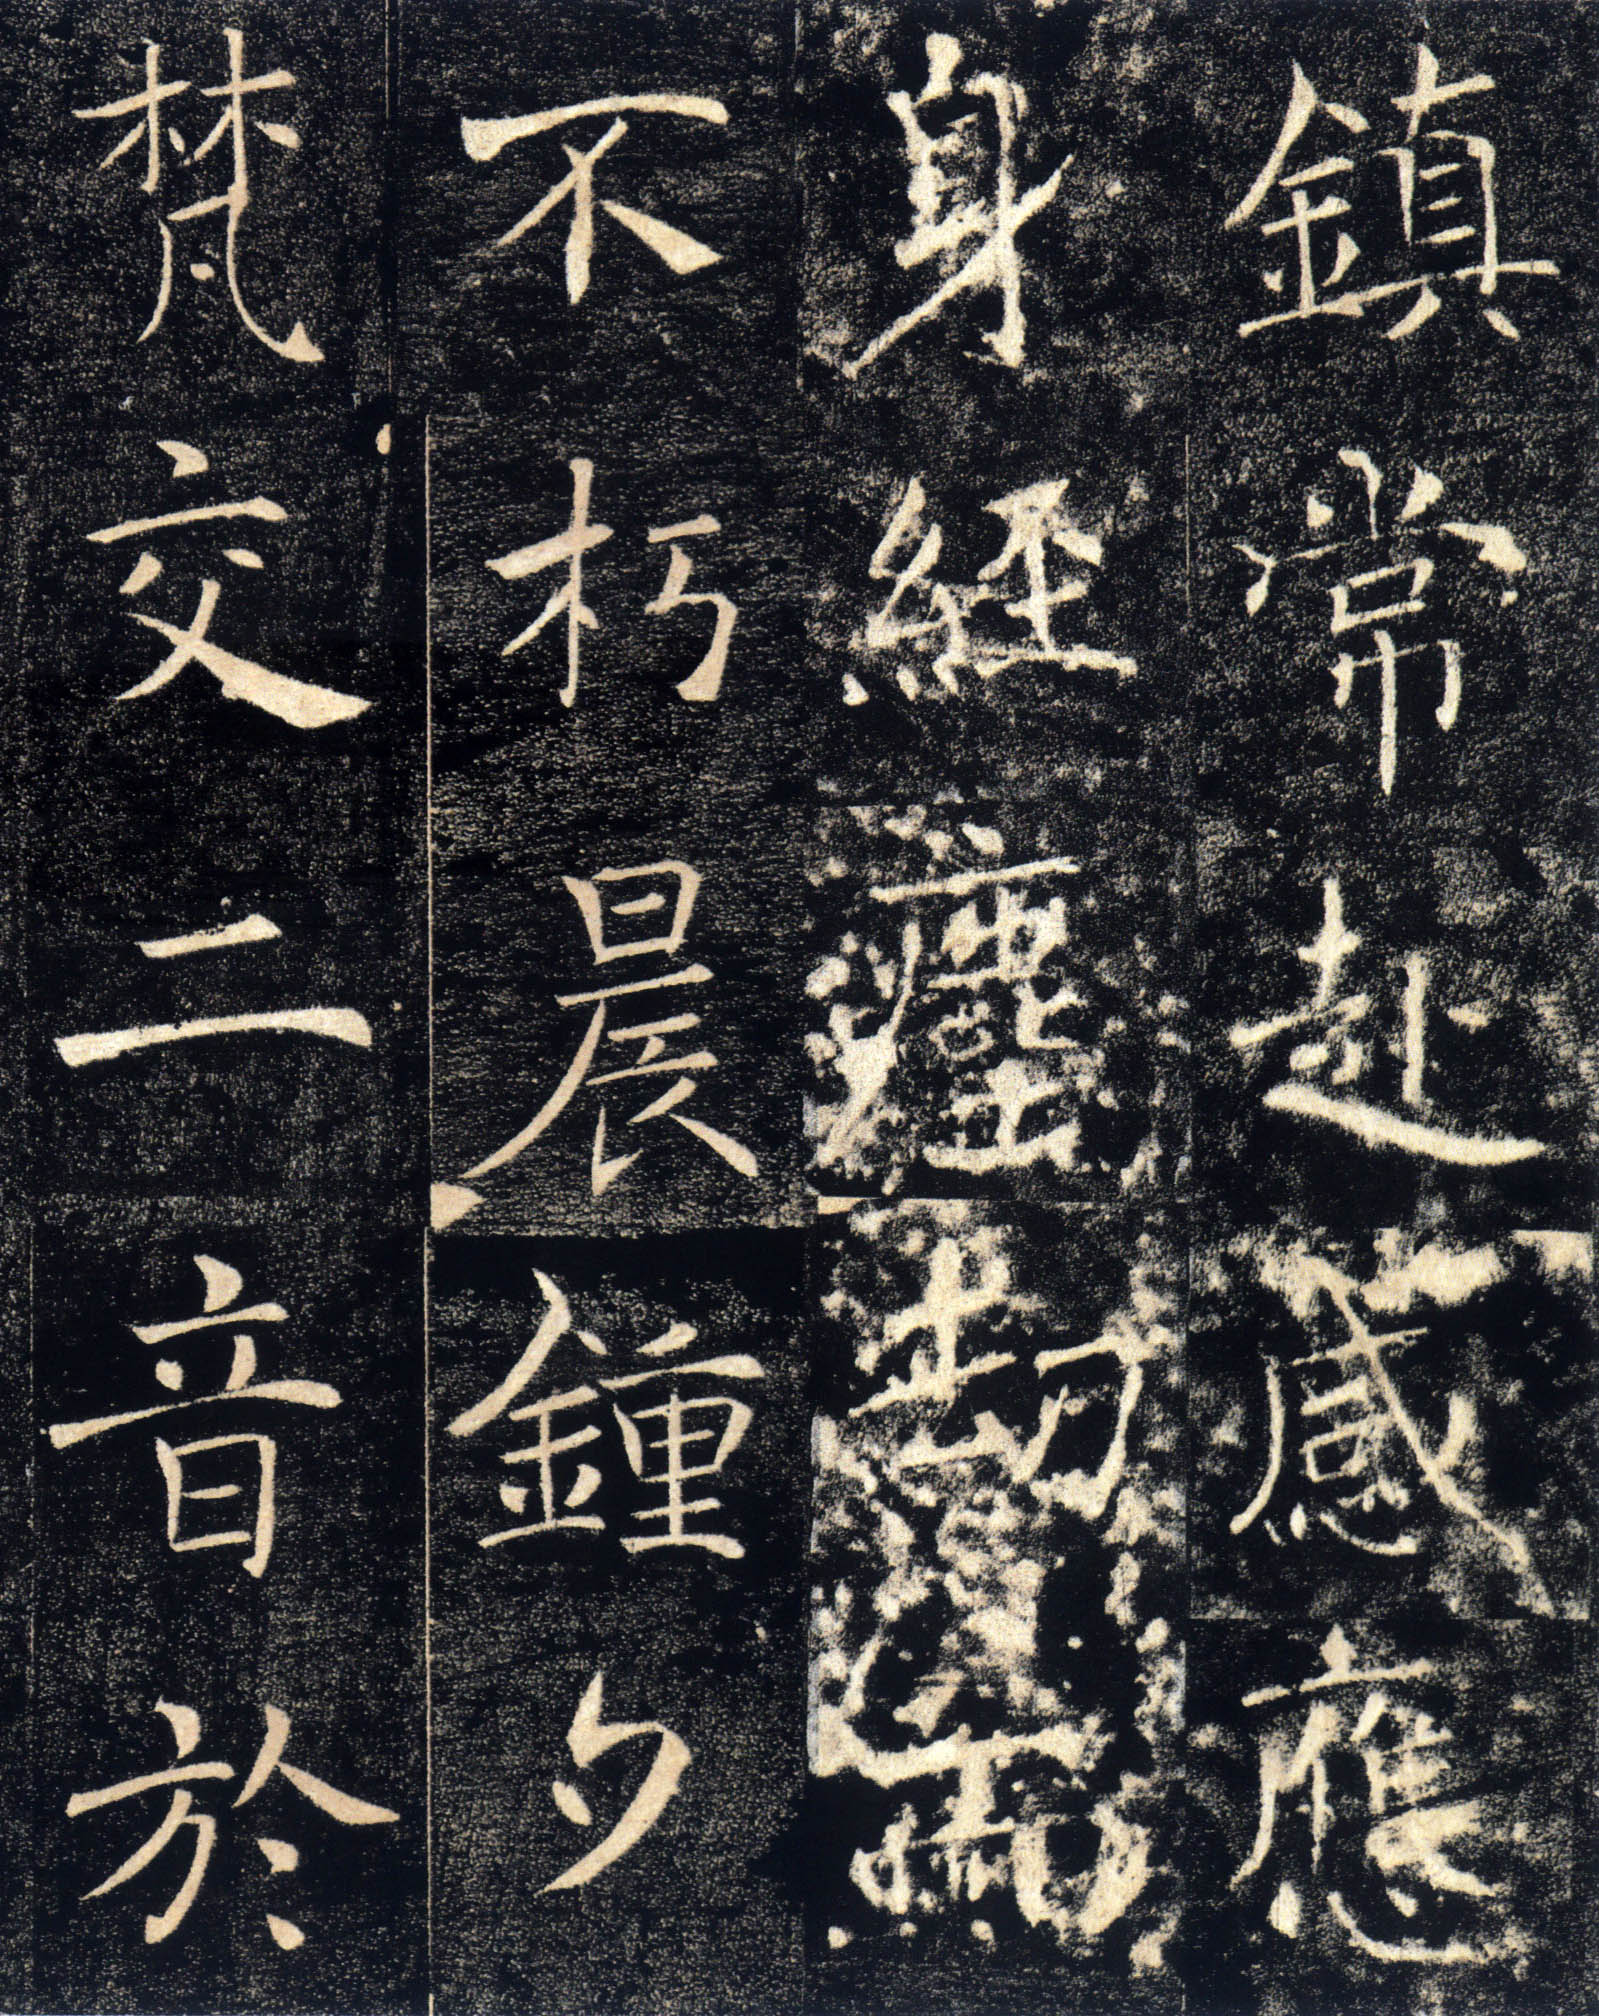 鎮常赴感應
身經塵劫而
不朽晨鐘夕
梵交二音於